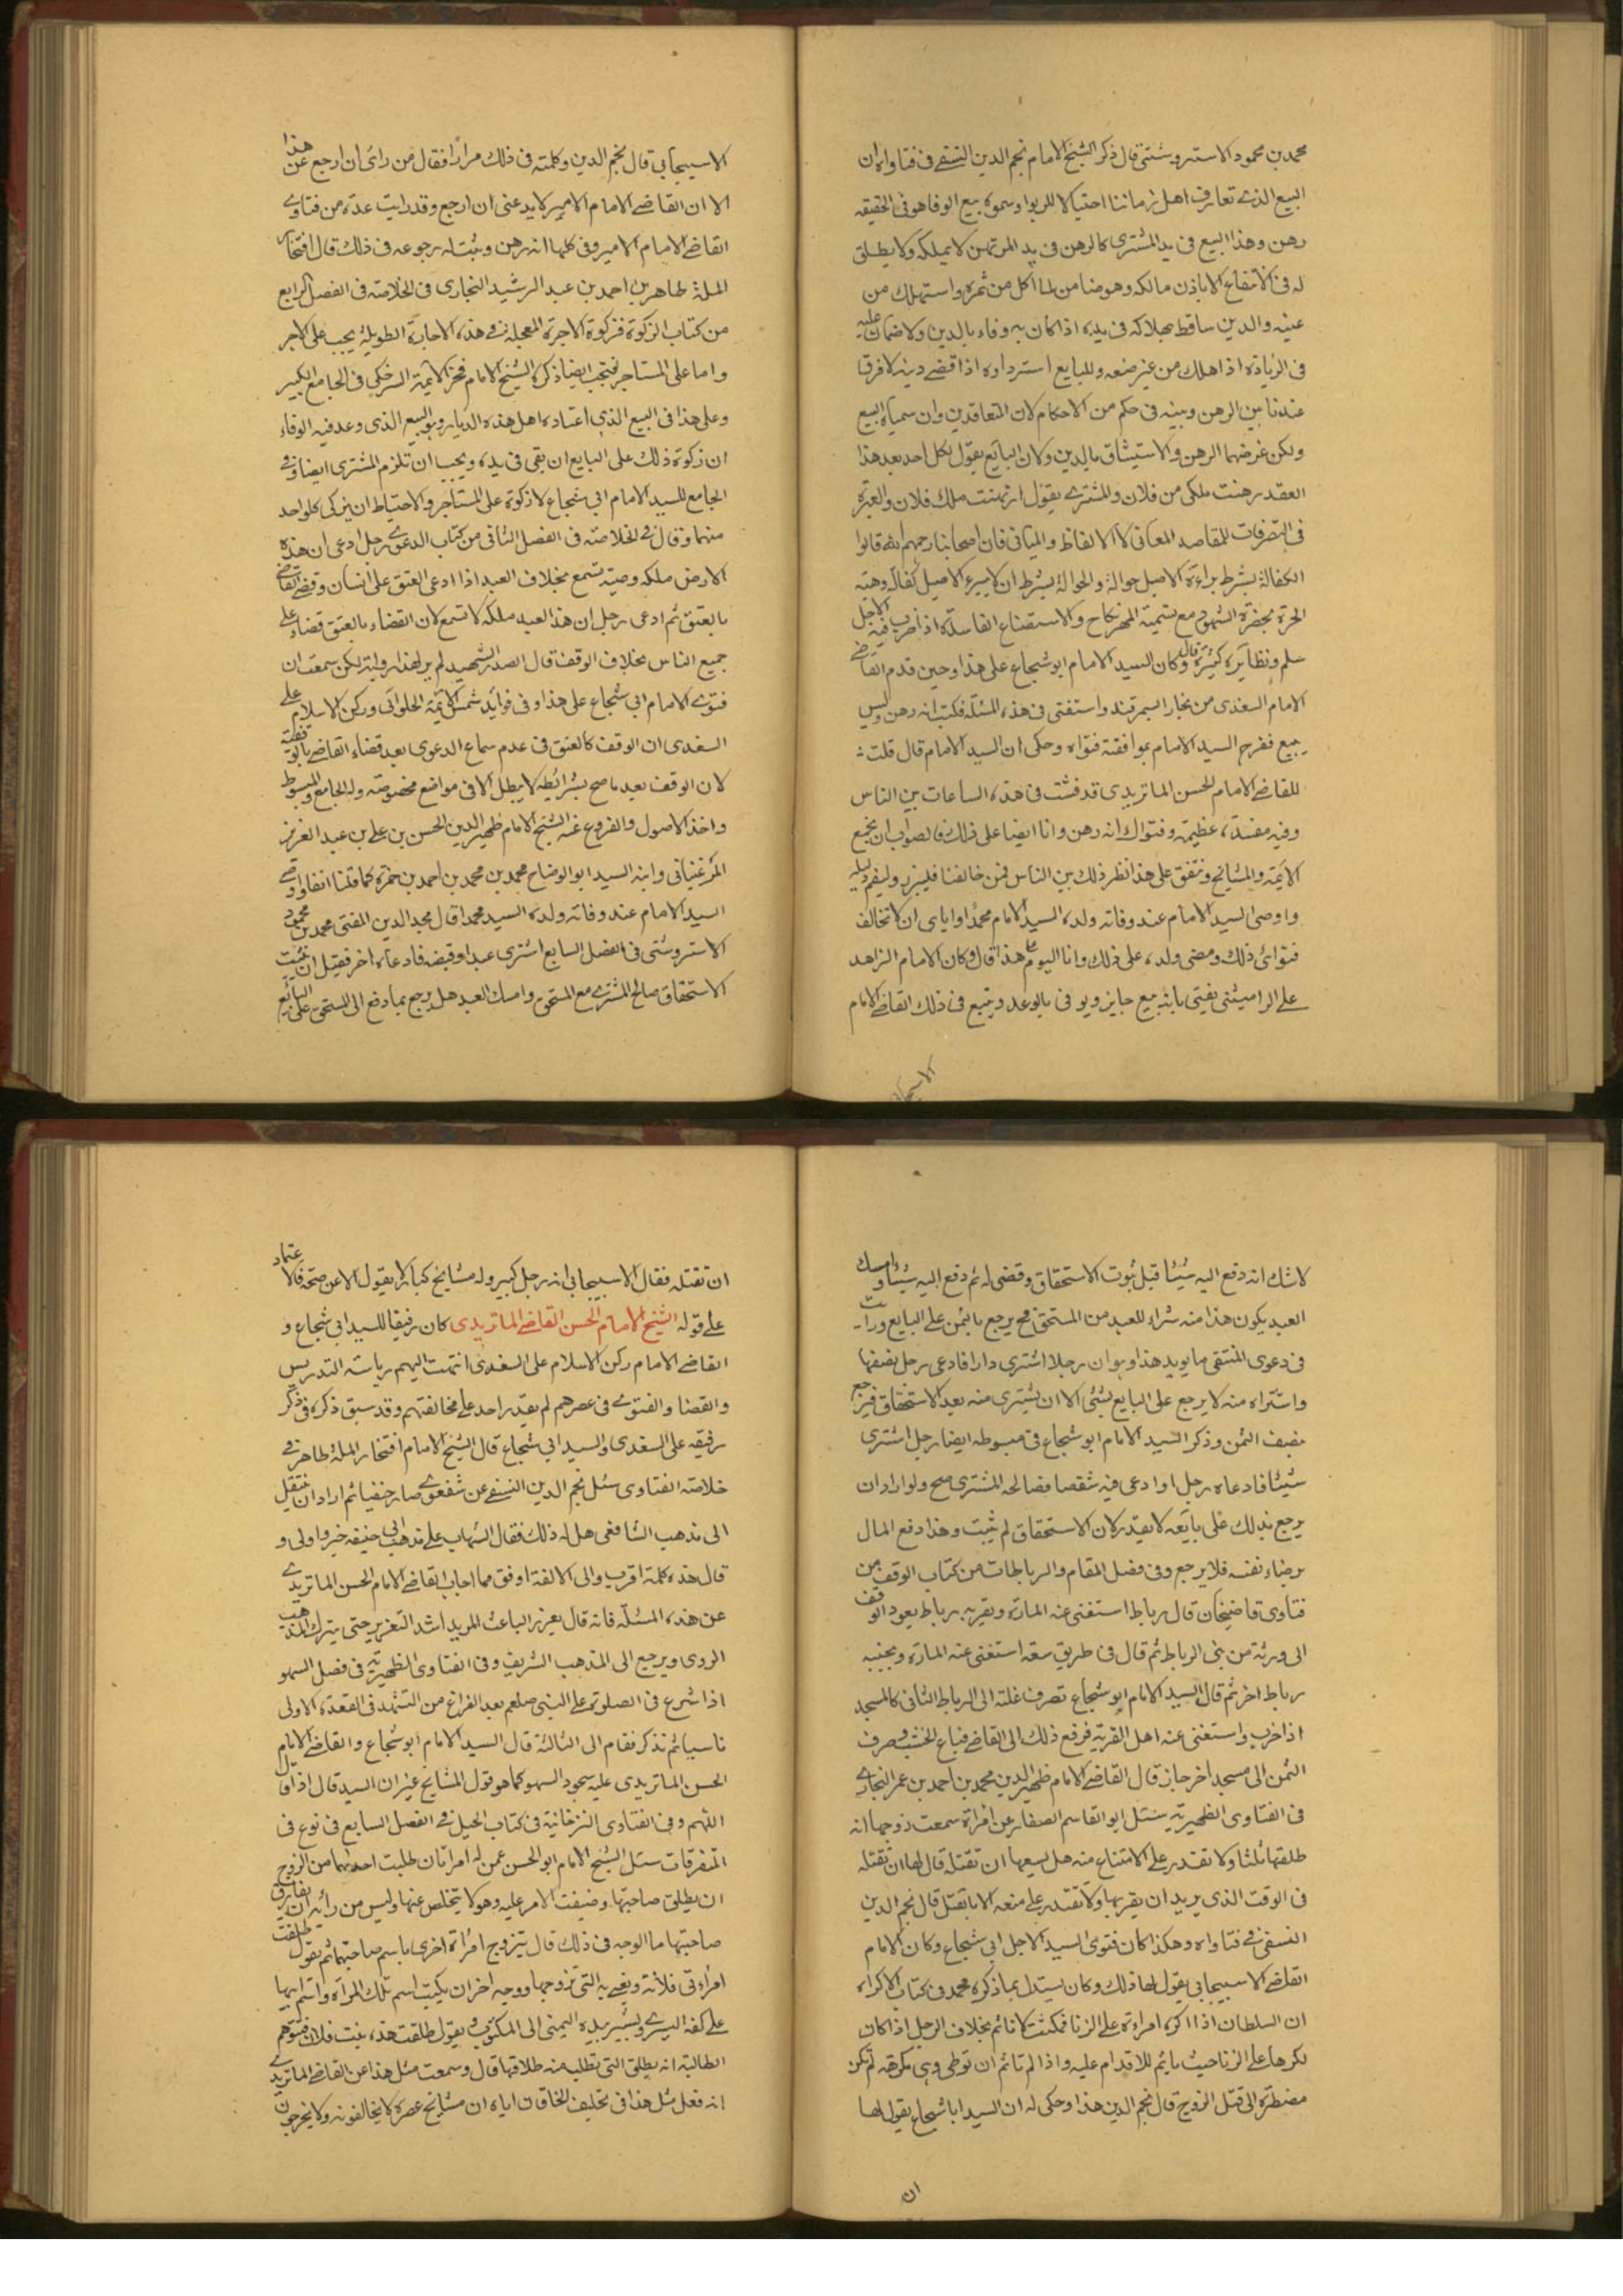 محمد بن محمود الاستروشنى قال ذكر الشيخ الامام نجم الدين النسفے فى فتاواه ان
البيع الذے تعارفه اهل زماننا احتيالا للربوا وسموه بيع الوفا هو فى الحقيقه
رهن وهذا البيع فى يد المشترى كالرهن فى يد المرتهن لا يملكه ولا يطلق
له فى الانتفاع الا باذن مالكه وهو ضامن لما اكل من ثمره واستهلك من
عينه والدين ساقط بهلاكه فى يده اذا كان به وفاء بالدين ولا ضمان عليه
فى الزيادة اذا هلك من غير صنعه وللبايع استرداده اذا قضے دينه لا فرق
عندنا بين الرهن وبينه فى حكم من الاحكام لان المتعاقدين وان سمياه البيع
ولكن غرضهما الرهن والاستيثاق بالدين ولان البايع يقول لكل احد بعد هذا
العقد رهنت ملكى من فلان والمشترے يقول ارتهنت ملك فلان والعبرة
فى التصرفات للمقاصد المعانى لا الالفاظ والمبانى فان اصحابنا رحمهم الله قالوا
الكفالة بشرط براءة الاصيل حوالة والحوالة بشرط ان لا يبرء الاصيل كفالة وهبة
الحرة بحضرة الشهود مع تسمية المهر نكاح والاستصناع الفاسدة اذا ضرب فيه الاجل
سلم ونظايره كثيرة قال وكان السيد الامام ابو شجاع على هذا وحين قدم القاضے
الامام السغدى من بخارا بسمرقند واستفتى فى هذه المسئلة فكتب انه رهن وليس
ببيع ففرح السيد الامام بموافقة فتواه وحكى ان السيد الامام قال قلت
للقاضے الامام الحسن الماتريدى قد فشت فى هذه الساعات بين الناس
وفيه مفسدة عظيمة وفتواك انه رهن وانا ايضا على ذلك فالصواب ان نجمع
الائمة والمشايخ ونتفق على هذا نظهر ذلك بين الناس فمن خالفنا فليبرز وليقم دليله
واوصى السيد الامام عند وفاته ولده السيد الامام محمدا واياى ان لا تخالف
فتوائى ذلك ومضى ولده على ذلك وانا اليوم على هذا قال وكان الامام الزاهد
على الراميثنى يفتى بانه بيع جايز ويوفى بالوعد ويتبع فى ذلك القاضے الامام
الاسبيجابى
الاسبيجابى قال نجم الدين وكلمته فى ذلك مرارا فقال من رائى ان ارجع عن هذا
الا ان القاضے الامام الامير لا يدعنى ان ارجع وقد رايت عدة من فتاوے
القاضے الامام الامير وفى كلها انه رهن ويثبت له رجوعه فى ذلك قال افتخار
الملة طاهر بن احمد بن عبد الرشيد البخارى فى الخلاصة فى الفصل الرابع
من كتاب الزكوة فزكوة الاجرة المعجلة فے هذه الاجارة الطويلة يجب على الاجر
واما على المستاجر فتجب ايضا ذكره الشيخ الامام فخر الايمة السرخكى فى الجامع الكبير
وعلى هذا فى البيع الذى اعتاده اهل هذه الديار وهو البيع الذى وعد فيه الوفاء
ان زكوة ذلك على البايع ان بقى فى يده ويجب ان تلزم المشترى ايضا وفے
الجامع للسيد الامام ابى شجاع لا زكوة على المستاجر والاحتياط ان يزكى كل واحد
منهما وقال فے الخلاصة فى الفصل الثانى من كتاب الدعوے رجل ادعى ان هذه
الارض ملكه وصية تسمع بخلاف العبد اذا ادعى العتق على انسان وقضے القاضے
بالعتق ثم ادعى رجل ان هذا العبد ملكه لا تسمع لان القضاء بالعتق قضاء على
جميع الناس بخلاف الوقف قال الصدر الشهيد لم ير لهذا رواية لكن سمعت ان
فتوے الامام ابى شجاع على هذا وفى فوايد شمس الائمة الحلوائى وركن الاسلام على
السغدى ان الوقف كالعتق فى عدم سماع الدعوى بعد قضاء القاضے بالوقفية
لان الوقف بعد ما صح بشرائطه لا يبطل الا فى مواضع مخصوصة وله الجامع والمبسوط
واخذ الاصول والفروع عنه الشيخ الامام ظهير الدين الحسن بن على بن عبد العزيز
المرغينانى وابنه السيد ابو الوضاح محمد بن محمد بن احمد بن حمزة كما قلنا انفا واوصے
السيد الامام عند وفاته ولده السيد محمدا قال مجد الدين المفتى محمد بن محمود
الاستروشنى فى الفصل السابع اشترى عبدا وقبضه فادعاه اخر فقيل ان يثبت
الاستحقاق صالح المشترے مع المستحق وامسك العبد هل يرجع بما دفع الى المستحق على البائع
لا شك انه دفع اليه شيئا قبل ثبوت الاستحقاق وقضى له ثم دفع اليه شيئا وامسك
العبد يكون هذا منه شراء للعبد من المستحق فح يرجع بالثمن على البايع ورايت
فى دعوى المنتقى ما يويد هذا وهو ان رجلا اشترى دارا فادعى رجل نصفها
واشتراه منه لا يرجع على البايع بشئ الا ان يشترى منه بعد الاستحقاق فيرجع
بنصف الثمن وذكر السيد الامام ابو شجاع فى مبسوطه ايضا رجل اشترى
شيئا فادعاه رجل او ادعى فيه شقصا فصالحه المشترى صح ولو اراد ان
يرجع بذلك على بايعه لا يقدر لان الاستحقاق لم يثبت وهذا دفع المال
برضاء نفسه فلا يرجع وفى فصل المقام والرباطات من كتاب الوقف من
فتاوى قاضيخان قال رباط استغنى عنه المارة وبقربه رباط يعود الوقف
الى ورثة من بنى الرباط ثم قال فى طريق سعة استغنى عنه المارة وبجنبه
رباط اخر ثم قال السيد الامام ابو شجاع تصرف غلته الى الرباط الثانى كالمسجد
اذا خرب واستغنى عنه اهل القرية فرفع ذلك الى القاضے فباع الخشب وصرف
الثمن الى مسجد اخر جاز قال القاضے الامام ظهير الدين محمد بن احمد بن عمر البخارے
فى الفتاوى الظهيرية سئل ابو القاسم الصفار عن امراة سمعت زوجها انه
طلقها ثلثا ولا تقدر على الامتناع منه هل يسعها ان تقتله قال لها ان تقتله
فى الوقت الذى يريد ان يقربها ولا تقدر على منعه الا بالقتل قال نجم الدين
النسفى فے فتاواه وهكذا كان فتوى السيد الاجل ابى شجاع وكان الامام
القاضے الاسبيجابى يقول لها ذلك وكان يستدل بما ذكره محمد فى كتاب الاكراه
ان السلطان اذا اكره امراة على الزنا فمكنت لا تاثم بخلاف الرجل اذا كان
يكرها على الزنا حيث ياثم للاقدام عليه واذا لم تاثم ان توطى وهى مكرهة لم تكن
مضطرة الى قتل الزوج قال نجم الدين هذا وحكى له ان السيد ابا شجاع يقول لها
ان
ان تقتله فقال الاسبيجابى انه رجل كبير وله مشايخ كبار لا يقول الا عن صحة فالاعتماد
على قوله الشيخ الامام الحسن القاضے الماتريدى كان رفيقا للسيد ابى شجاع و
القاضے الامام ركن الاسلام على السغدى انتهت اليهم رياسة التدريس
والقضا والفتوے فى عصرهم لم يقدر احد على مخالفتهم وقد سبق ذكره فى ذكر
رفيقه على السغدى والسيد ابى شجاع قال الشيخ الامام افتخار الملة طاهر فے
خلاصة الفتاوى سئل نجم الدين النسفے عن شفعوے صار حنفيا ثم اراد ان ينتقل
الى مذهب الشافعى هل له ذلك فقال الثبات على مذهب ابى حنيفه خير واولى و
قال هذه كلمة اقرب والى الالفة اوفق مما اجاب القاضے الامام الحسن الماتريدے
عن هذه المسئلة فانه قال يعزر الباعث المريد اشد التعزير حتى يترك المذهب
الردى ويرجع الى المذهب الشريف وفى الفتاوى الظهيرية فى فصل السهو
اذا شرع فى الصلوة على النبى صلعم بعد الفراغ من التشهد فى القعدة الاولى
ناسيا ثم تذكر فقام الى الثالثة قال السيد الامام ابو شجاع والقاضے الامام
الحسن الماتريدى عليه سجود السهو كما هو قول المشايخ غير ان السيد قال اذا قال
اللهم وفى الفتاوى التترخانية فى كتاب الحيل فے الفصل السابع فى نوع فى
المتفرقات سئل الشيخ الامام ابو الحسن عمن له امراتان طلبت احداهما من الزوج
ان يطلق صاحبتها وضيقت الامر عليه وهو لا يتخلص عنها وليس من رائه ان يفارق
صاحبتها ما الوجه فى ذلك قال يتزوج امراة اخرى باسم صاحبتها ثم يقول طلقت
امراءتى فلانة ويعنے به التى تزوجها ووجه اخر ان يكتب اسم تلك المرآة واسم ابيها
على كفه اليسرے ويشير بيده اليمنى الى المكتوب ويقول طلقت هذه بنت فلان فتوهم
الطالبة انه يطلق التى تطلب منه طلاقها قال وسمعت مثل هذا عن القاضے الماتريدے
انه فعل مثل هذا فى تحليف الخاقان اياه ان مشايخ عصره لا يخالفونه ولا يخرجون